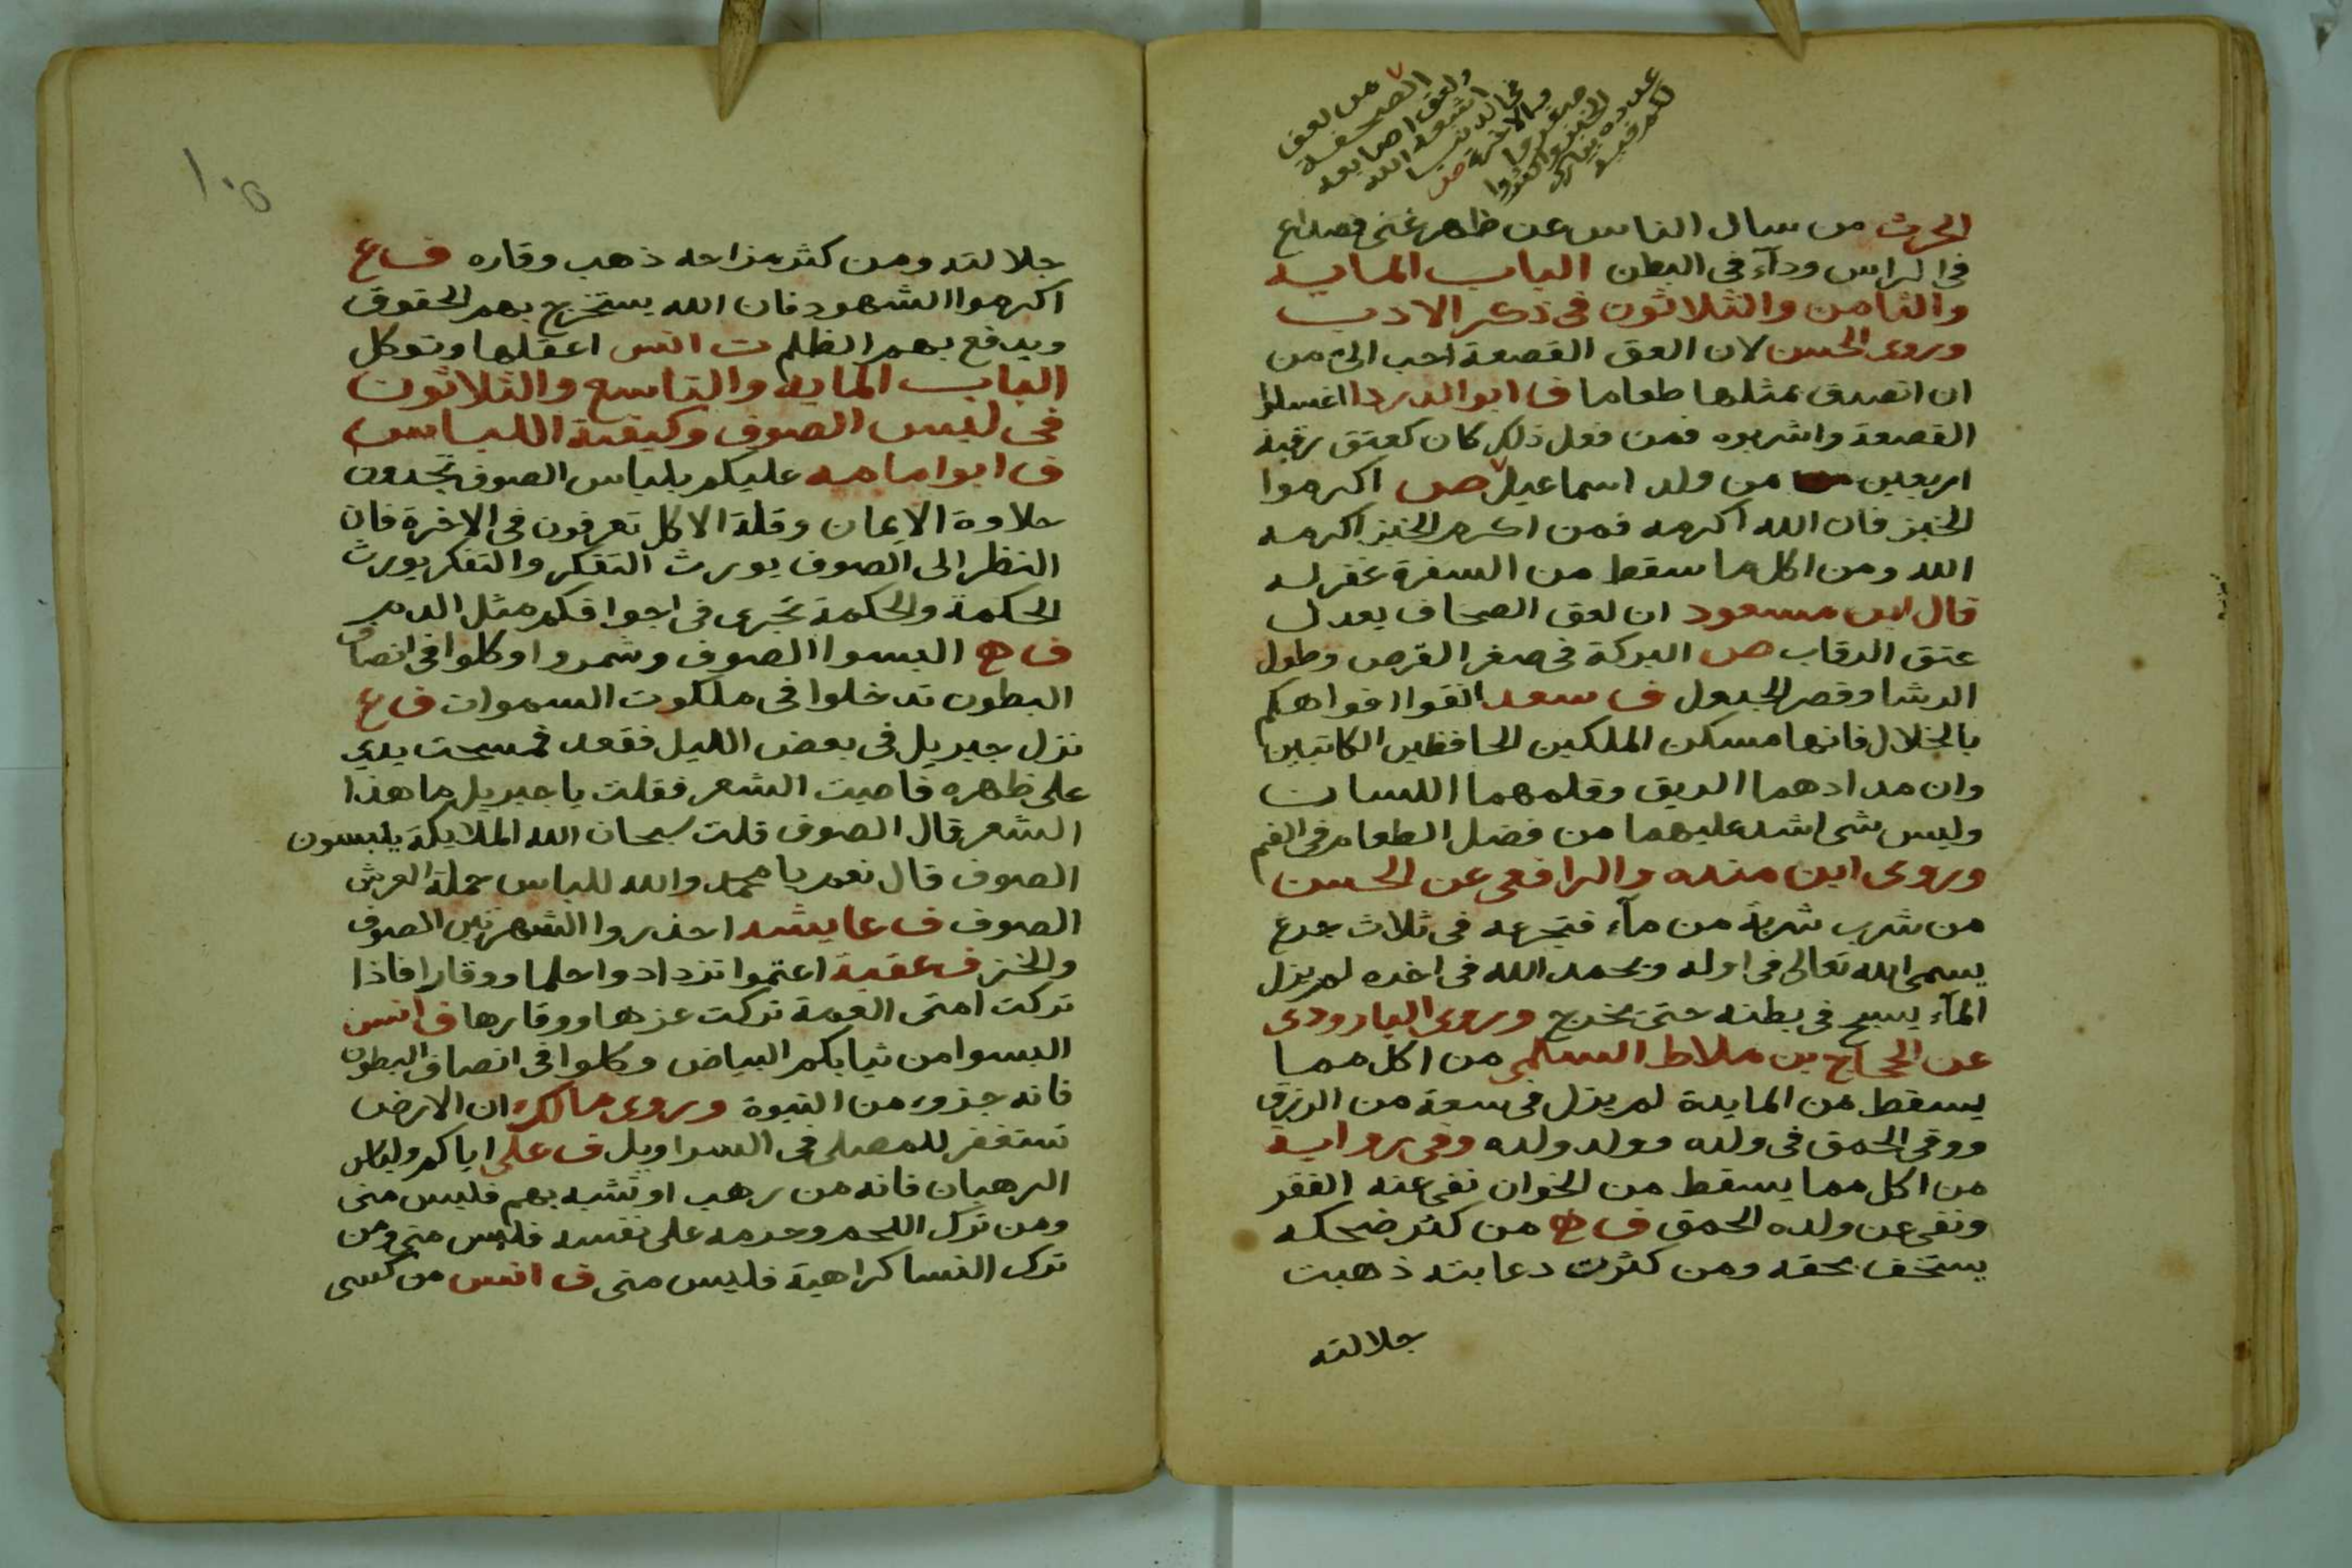 من لعق
الصحفة
ولعق اصابعه
اشبعه الله
في الدنيا
والاخرة ص
صغروا
الخبز واكثروا
عدده يبارك
لكم فيه
الحرث من سال الناس عن ظهر غنى فصداع
في الراس ودآء في البطن الباب المايه
والثامن والثلاثون في ذكر الادب
وروى الحسن لان العق القصعة احب الي من
ان اتصدق بمثلها طعاما ف ابو الدردا اغسلوا
القصعة واشربوه فمن فعل ذلك كان كعتق رقبة
اربعين من ولد اسماعيل ص اكرموا
الخبز فان الله اكرمه فمن اكرم الخبز اكرمه
الله ومن اكل ما سقط من السفرة غفر له
قال ابن مسعود ان لعق الصحاف يعدل
عتق الرقاب ص البركة في صغر القرص وطول
الرشا وقصر الجدول ف سعد انقوا افواهكم
بالخلال فانها مسكن الملكين الحافظين الكاتبين
وان مدادهما الريق وقلمهما اللسان
وليس شي اشد عليهما من فضل الطعام في الفم
وروى ابن منده والرافعي عن الحسن
من شرب شربة من مآء فتجرعه في ثلاث جرع
يسمى الله تعالى في اوله ويحمد الله في اخره لم يزل
المآء يسبح في بطنه حتى يخرج وروى الباروردى
عن الحجاج بن علاط السلمي من اكل مما
يسقط من المايدة لم يزل في سعة من الرزق
ووقي الحمق في ولده وولد ولده وفي رواية
من اكل مما يسقط من الخوان نفي عنه الفقر
ونفي عن ولده الحمق ف خ من كثر ضحكه
يستخف بحقه ومن كثرت دعابته ذهبت
جلالته
١٠٥
جلالته ومن كثر مزاحه ذهب وقاره ف ع
اكرموا الشهود فان الله يستخرج بهم الحقوق
ويدفع بهم الظلم ت انس اعقلها وتوكل
الباب المايه والتاسع والثلاثون
في لبس الصوف وكيفية اللباس
ف ابو امامه عليكم بلباس الصوف تجدون
حلاوة الايمان وقلة الاكل تعرفون في الاخرة فان
النظر الى الصوف يورث التفكر والتفكر يورث
الحكمة والحكمة تجرى في اجوافكم مثل الدم
ف ه البسوا الصوف وشمروا وكلوا في انصاف
البطون تدخلوا في ملكوت السموات ف ع
نزل جبريل في بعض الليل فقعد فمسحت يدي
على ظهره فاصبت الشعر فقلت يا جبريل ما هذا
الشعر قال الصوف قلت سبحان الله الملايكة يلبسون
الصوف قال نعم يا محمد والله للباس حملة العرش
الصوف ف عايشه احذروا الشهرتين الصوف
والخز ف عقبة اعتموا تزدادوا حلما ووقارا فاذا
تركت امتى العمة تركت عزها ووقارها ف انس
البسوا من ثيابكم البياض وكلوا في انصاف البطون
فانه جزء من النبوة وروى مالك ان الارض
تستغفر للمصلى في السراويل ف على اياكم ولباس
الرهبان فانه من رهب او تشبه بهم فليس منى
ومن ترك اللحم وحرمه على نفسه فليس منى ومن
ترك النسا كراهية فليس منى ف انس من كسى